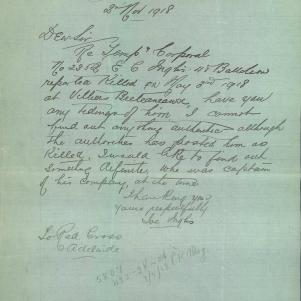 2nd Nov 1918
Dear Sir
Re Tempy Corporal
No 2352 E C Inglis. 48 Battalion
reported Killed on May 3rd 1918
at Villers Bretonneaux, have you
any tidings of him I cannot
find out anything authentic although
the authorities has posted him as
Killed, I would like to find out
something definite, who was captain
of his company, at the time
Thanking you
yours respectfully
Joe Inglis
To Red Cross
Adelaide